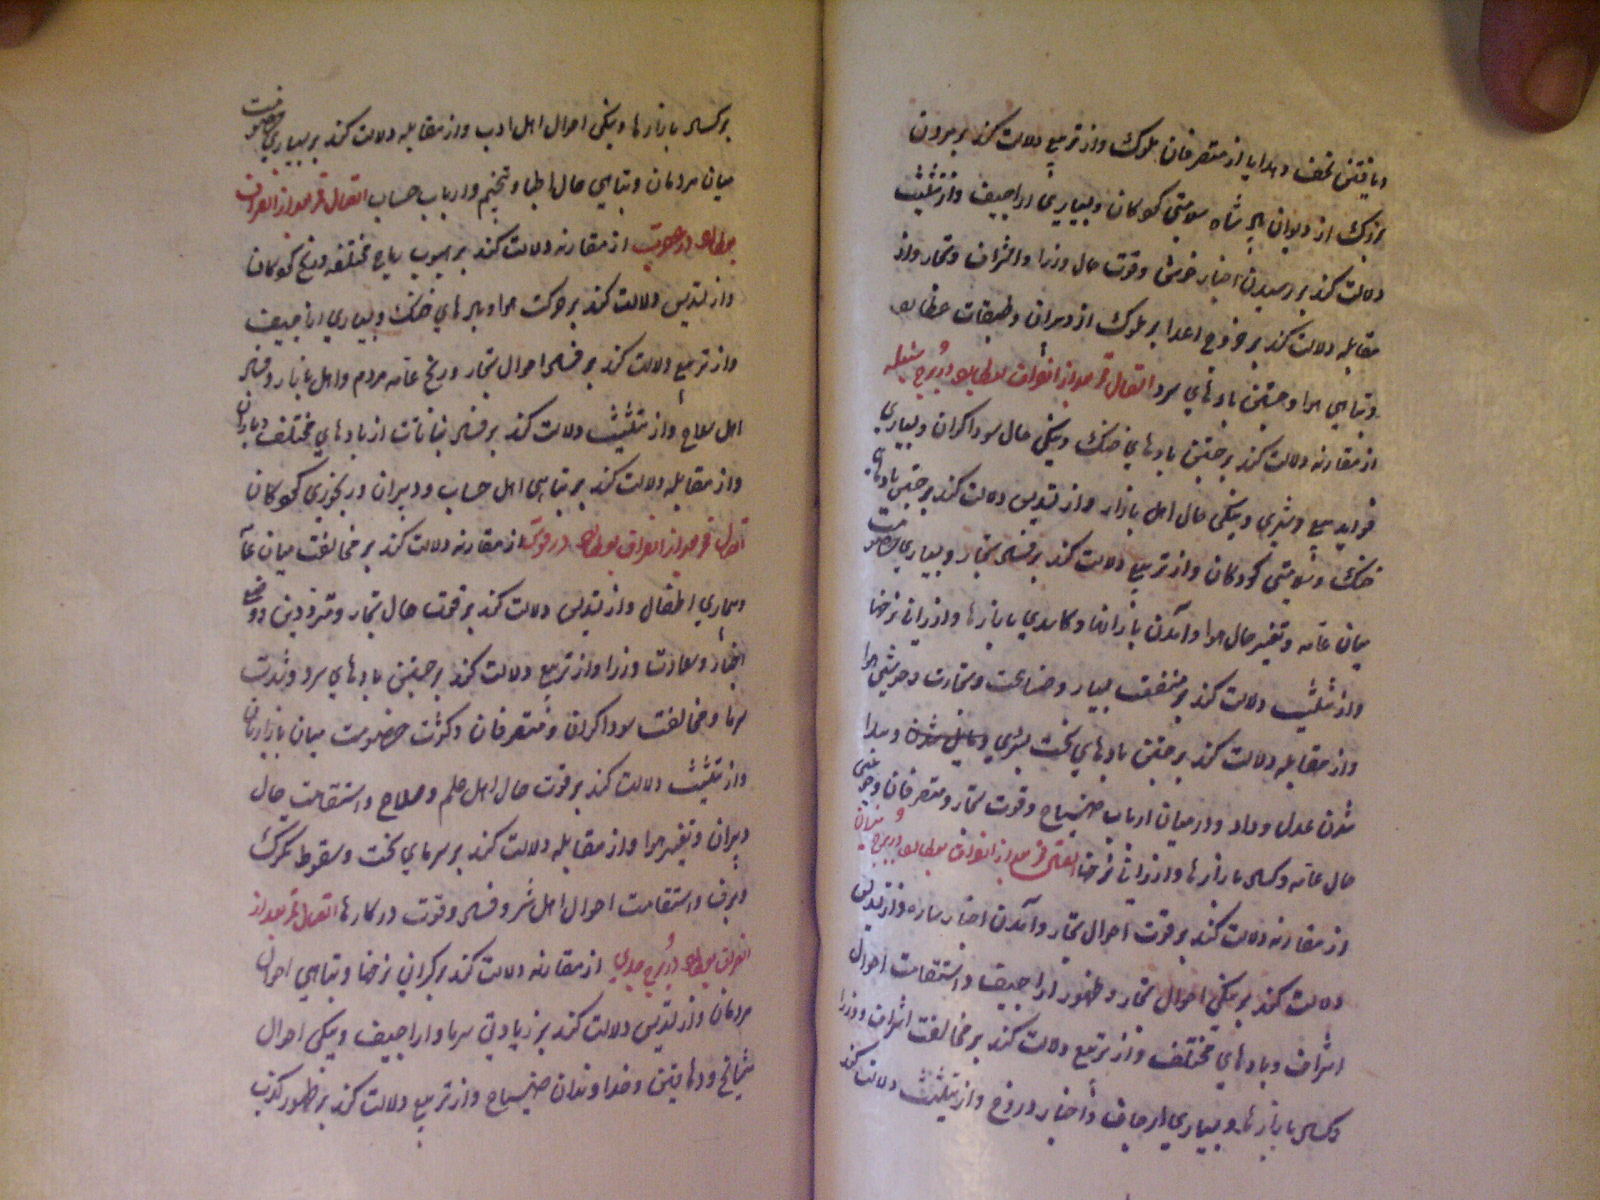 و یافتن تحف و هدایا از متصرفان ملوک و از تربیع دلالت کند بر بیرون
از دیوان بر شاه سلامتی کودکان و بسیاری اراجیف و از تثلیث
دلالت کند بر رسیدن اخبار خوش و قوت حال وزرا و اشراف و تجار و از
مقابله دلالت کند بر خروج اعدا بر ملوک از دبیران و طبقات عطارد
و تباهی هوا و جستن بادهای سرد اتصال قمر بعد از انصراف بعطارد در برج سنبله
از مقارنه دلالت کند بر جستن بادهای خنک و نیکی حال سوداکران و بسیاری
فواید بیع و شری و نیکی حال اهل بازار و از تسدیس دلالت کند بر جستن بادهای
خنک و سلامتی کودکان و از تربیع دلالت کند بر فساد تجار و بسیاری خصومت
میان عامه و تغییر حال هوا و آمدن بارانها و کاسدی بازارها و ارزانی نرخها
و از تثلیث دلالت کند بر منفعت بسیار و صناعت و تجارت و خوشی هوا
و از مقابله دلالت کند بر جستن بادهای سخت بشری و پیدا
شدن عدل و داد و در میان ارباب ضیاع و قوت تجار و متصرفان و خوشی
حال عامه و کساد بازارها و ارزانی نرخها اتصال قمر بعد از انصراف بعطارد در برج میزان
از مقارنه دلالت کند بر قوت احوال تجار و آمدن اخبار ساره و از تسدیس
دلالت کند بر نیکی احوال تجار و ظهور اراجیف و استقامت احوال
اشراف و بادهای مختلف و از تربیع دلالت کند بر مخالفت اشراف و وزرا
و کساد بازارها و بسیاری ارجاف و اخبار دروغ و از تثلیث دلالت کند
بر کساد بازارها و نیکی احوال اهل ادب و از مقابله دلالت کند بر بسیاری خصومت
میان مردمان و تباهی حال اطبا و تنجیم و ارباب حساب اتصال قمر بعد از انصراف
بعطارد در عقرب از مقارنه دلالت کند بر هبوب ریاح مختلفه و رنج کودکان
و از تسدیس دلالت کند بر حرکت هوا و ابرهای خنک و بسیاری اراجیف
و از تربیع دلالت کند بر فساد احوال تجار و رنج عامه مردم و اهل بازار و فساد
اهل سلاح و از تثلیث دلالت کند بر فساد نباتات از بادهای مختلف و باران
و از مقابله دلالت کند بر تباهی اهل حساب و دبیران و رنجوری کودکان
اتصال قمر بعد از انصراف بعطارد در قوس از مقارنه دلالت کند بر مخالفت میان عامه
و بیماری اطفال و از تسدیس دلالت کند بر قوت حال تجار و
اخبار و سعادت وزرا و از تربیع دلالت کند بر جستن بادهای سرد و شدت
سرما و مخالفت سوداکران و متصرفان و کثرت خصومت میان بازاریان
و از تثلیث دلالت کند بر قوت حال اهل علم و صلاح و استقامت حال
دبیران و تغییر هوا و از مقابله دلالت کند بر سرمای سخت و سقوط تکرک
و برف و استقامت احوال اهل شر و فساد و قوت در کارها اتصال قمر بعد از
انصراف بعطارد در برج جدی از مقارنه دلالت کند بر کرانی نرخها و تباهی احوال
مردمان و از تسدیس دلالت کند بر زیادتی سرما و اراجیف و نیکی احوال
مشایخ و دهاقین و خداوندان ضیاع و از تربیع دلالت کند بر ظهور کذب